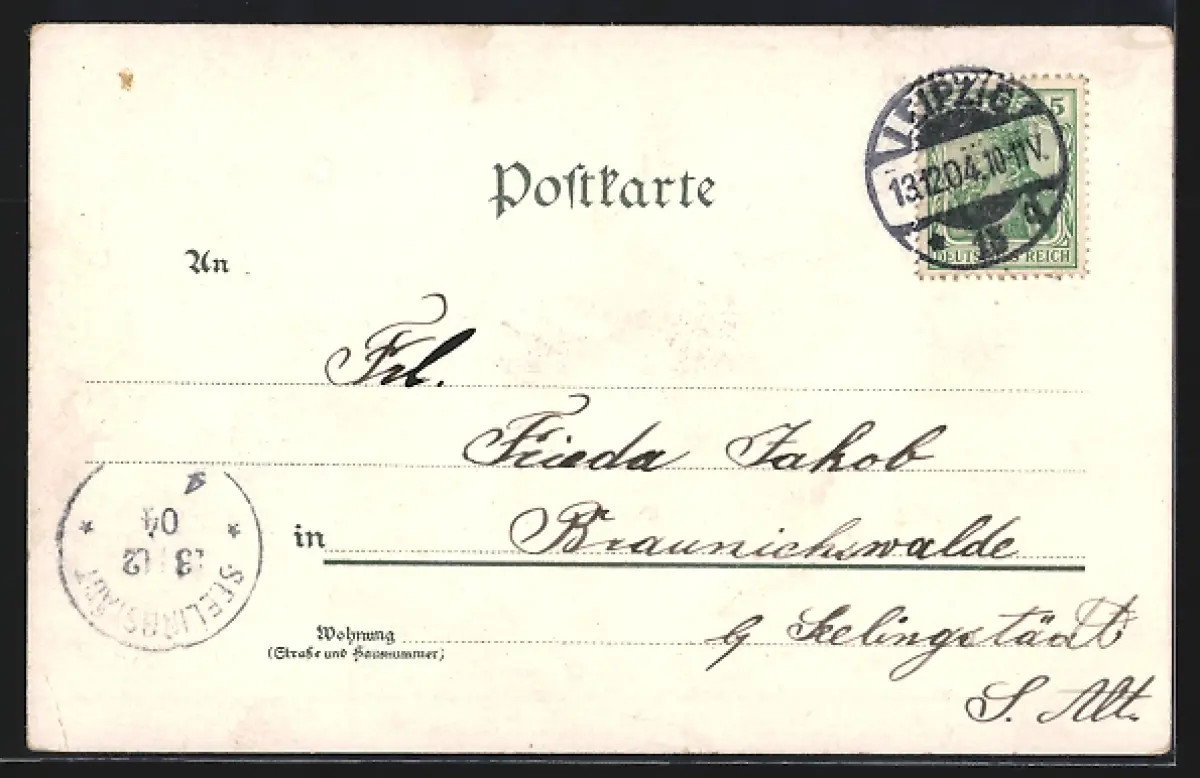 Postkarte
LEIPZIG
13.12.04.10-11V.
* 13 q
5
DEUTSCHES REICH
An
Frl.
Frieda Jakob
in Braunichswalde
Wohnung
(Straße und Hausnummer)
b/ Seelingstädt
S. Alt.
SEELINGSTÄDT
13 12
04